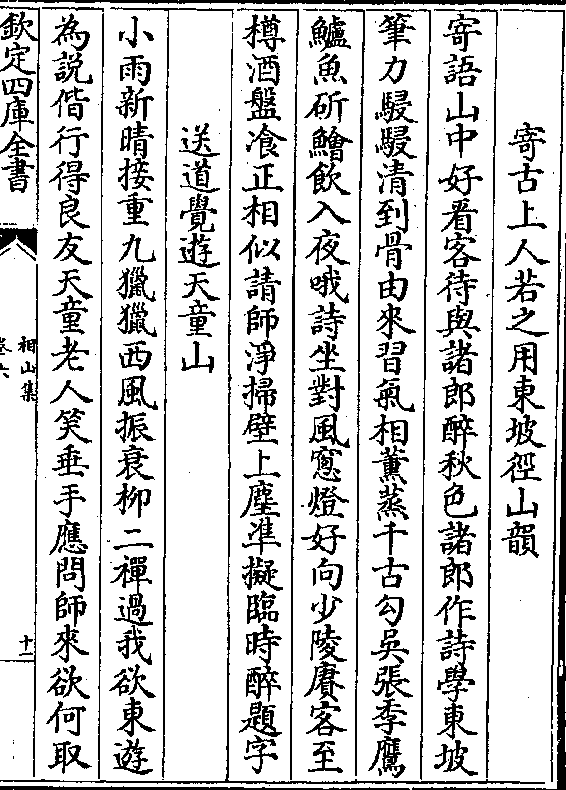 寄古上人若之用東坡徑山韻
寄語山中好看客待與諸郎醉秋色諸郎作詩學東坡
筆力駸駸清到骨由來習氣相薰蒸千古勾吳張季鷹
鱸魚斫鱠飲入夜哦詩坐對風窓燈好向少陵賡客至
樽酒盤飡正相似請師淨掃壁上塵凖擬臨時醉題字
送道覺遊天童山
小雨新晴接重九獵獵西風振衰柳二禪過我欲東遊
為説偕行得良友天童老人笑垂手應問師來欲何取
欽定四庫全書
相山集
卷六
十一